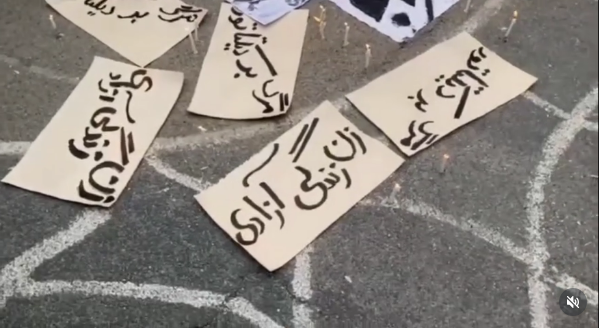 مرگ بر دیکتاتور
زن زندگی آزادی
مرگ بر دیکتاتور
زن زندگی آزادی
مرگ بر دیکتاتور